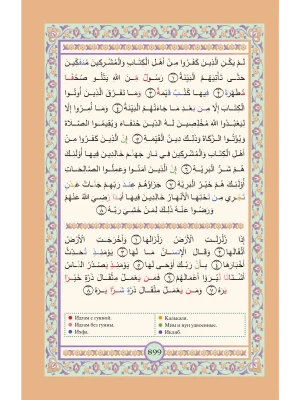 لم يكن الذين كفروا من أهل الكتاب والمشركين منفكين
حتى تأتيهم البينة ۝١ رسول من الله يتلو صحفا
مطهرة ۝٢ فيها كتب قيمة ۝٣ وما تفرق الذين أوتوا
الكتاب إلا من بعد ما جاءتهم البينة ۝٤ وما أمروا إلا
ليعبدوا الله مخلصين له الدين حنفاء ويقيموا الصلاة
ويؤتوا الزكاة وذلك دين القيمة ۝٥ إن الذين كفروا من
أهل الكتاب والمشركين في نار جهنم خالدين فيها أولئك
هم شر البرية ۝٦ إن الذين آمنوا وعملوا الصالحات
أولئك هم خير البرية ۝٧ جزاؤهم عند ربهم جنات عدن
تجري من تحتها الأنهار خالدين فيها أبدا رضي الله عنهم
ورضوا عنه ذلك لمن خشي ربه ۝٨
إذا زلزلت الأرض زلزالها ۝١ وأخرجت الأرض
أثقالها ۝٢ وقال الإنسان ما لها ۝٣ يومئذ تحدث
أخبارها ۝٤ بأن ربك أوحى لها ۝٥ يومئذ يصدر الناس
أشتاتا ليروا أعمالهم ۝٦ فمن يعمل مثقال ذرة خيرا
يره ۝٧ ومن يعمل مثقال ذرة شرا يره ۝٨
Идгам с гунной. Калькаля.
Идгам без гунны. Мим и нун удвоенные.
Ихфа. Иклаб.
899